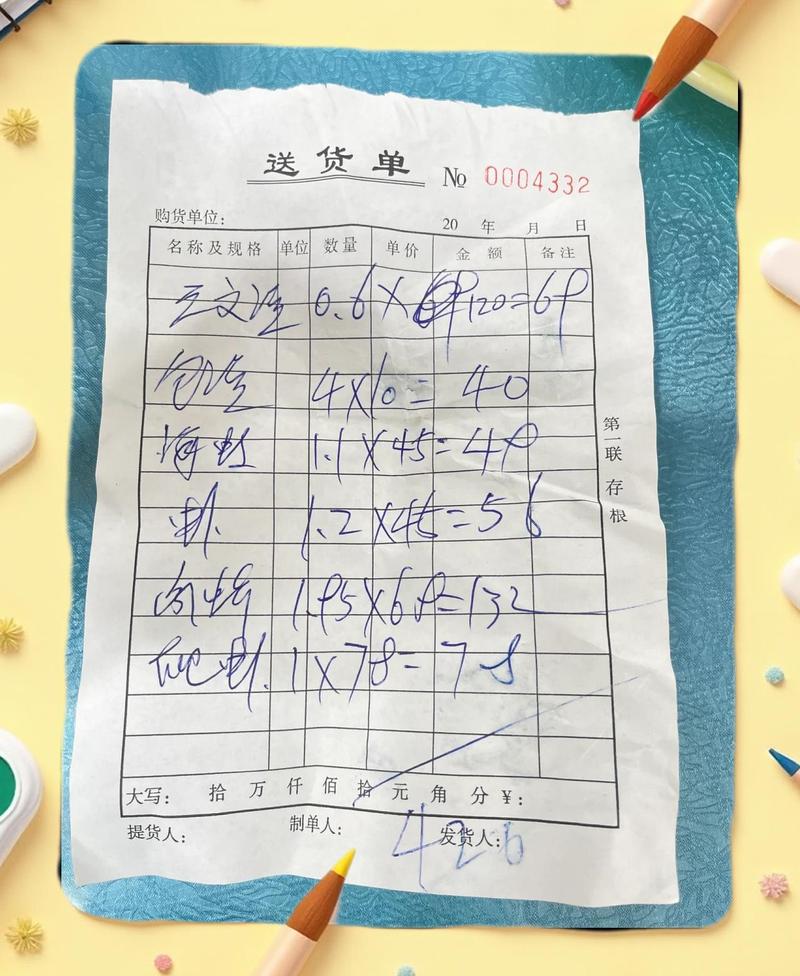 送货单 № 0004332
购货单位： 20 年 月 日
名称及规格 单位 数量 单价 金额 备注
三文鱼 0.6 × 120 = 69
4×10 = 40
海虹 1.1 × 45 = 49
1.2 × 45 = 56
1.95 × 68 = 132
1 × 78 = 78
大写： 拾 万 仟 佰 拾 元 角 分 ¥：
提货人： 制单人： 发货人：
426
第一联 存根